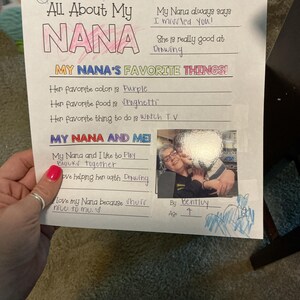 All About My
NANA
My Nana always says
I missed you!
She is really good at
Drawing
MY NANA'S FAVORITE THINGS!
Her favorite color is Purple
Her favorite food is Spaghetti
Her favorite thing to do is Watch T.V
MY NANA AND ME!
My Nana and I like to Play
together
I love helping her with Drawing
I love my Nana because
By Bentley
Age 9